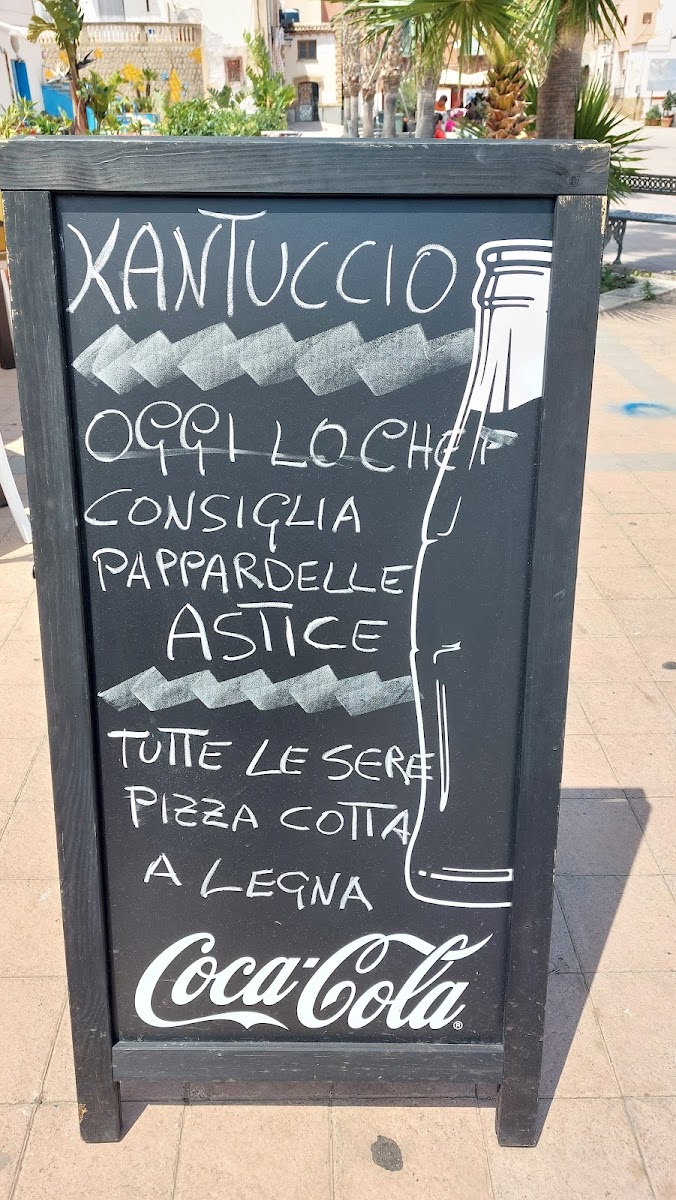 XANTUCCIO
OGGI LO CHEF
CONSIGLIA
PAPPARDELLE
ASTICE
TUTTE LE SERE
PIZZA COTTA
A LEGNA
Coca-Cola®